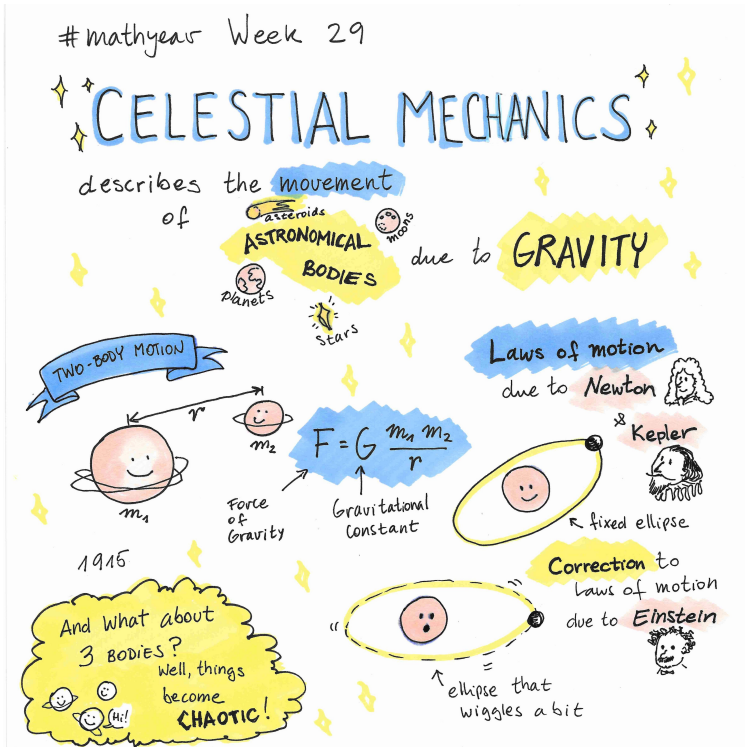 #mathyear Week 29
CELESTIAL MECHANICS
describes the movement
of
asteroids
moons
ASTRONOMICAL
BODIES
planets
stars
due to GRAVITY
TWO-BODY MOTION
r
m₁
m₂
F = G m₁ m₂ / r
Force
of
Gravity
Gravitational
Constant
Laws of motion
due to Newton
& Kepler
fixed ellipse
1915
Correction to
Laws of motion
due to Einstein
ellipse that
wiggles a bit
And what about
3 BODIES?
Well, things
become
CHAOTIC!
Hi!